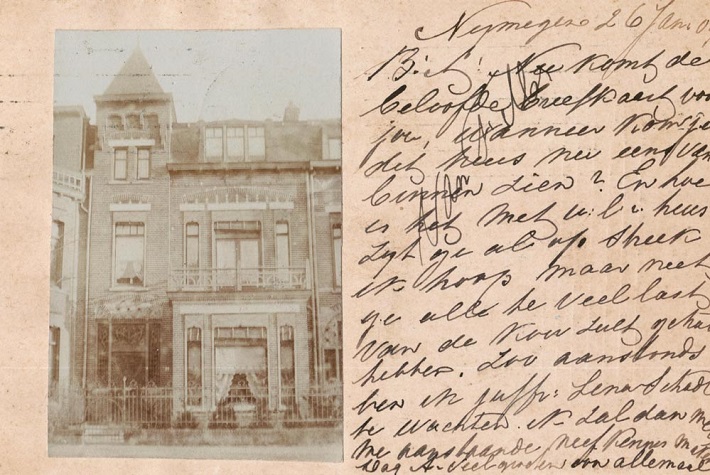 Nijmegen 26 Jan 0
Bet! Nu komt de
beloofde Breefkaart voor
jou, wanneer kom je
dit huis nu eens van
binnen zien? En hoe
is het met u: l: huis
Ligt ge al op streek
ik hoop maar niet
ge alle te veel last
van de kou zult gehad
hebben. Zoo aanstonds
ben ik juffr: Lena
te wachten. Ik zal dan met
me aanstaande neef
Dag A. veel groeten von allemaal